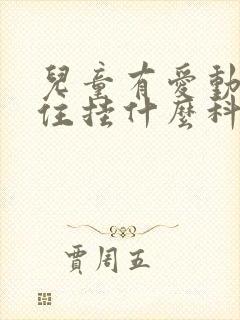 兒童有愛動
住挂什麼科
賈周五